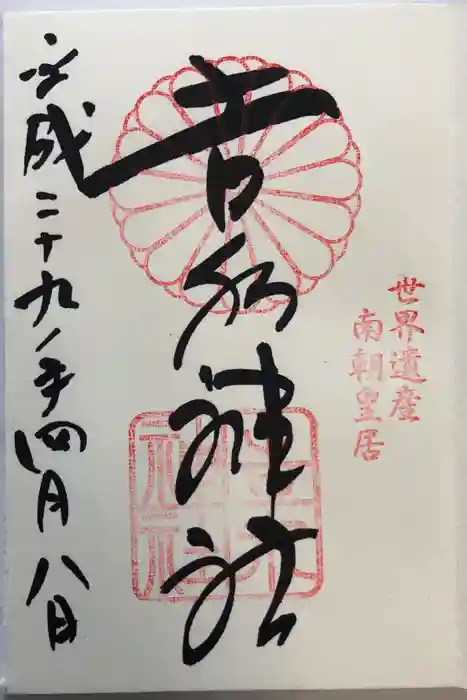 世界遺産
南朝皇居
吉水神社
平成二十九年四月八日
吉水
神社